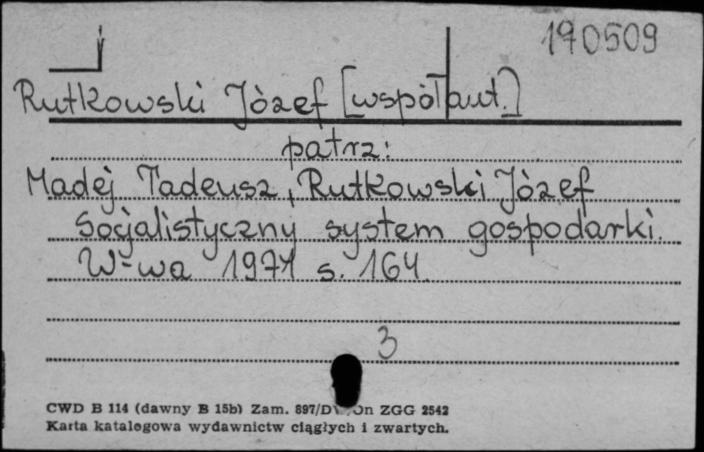 190509
Rutkowski Józef [współaut.]
patrz:
Madej Tadeusz, Rutkowski Józef
Socjalistyczny system gospodarki.
W-wa 1971 s. 164
3
CWD B 114 (dawny B 15b) Zam. 897/D On ZGG 2542
Karta katalogowa wydawnictw ciągłych i zwartych.